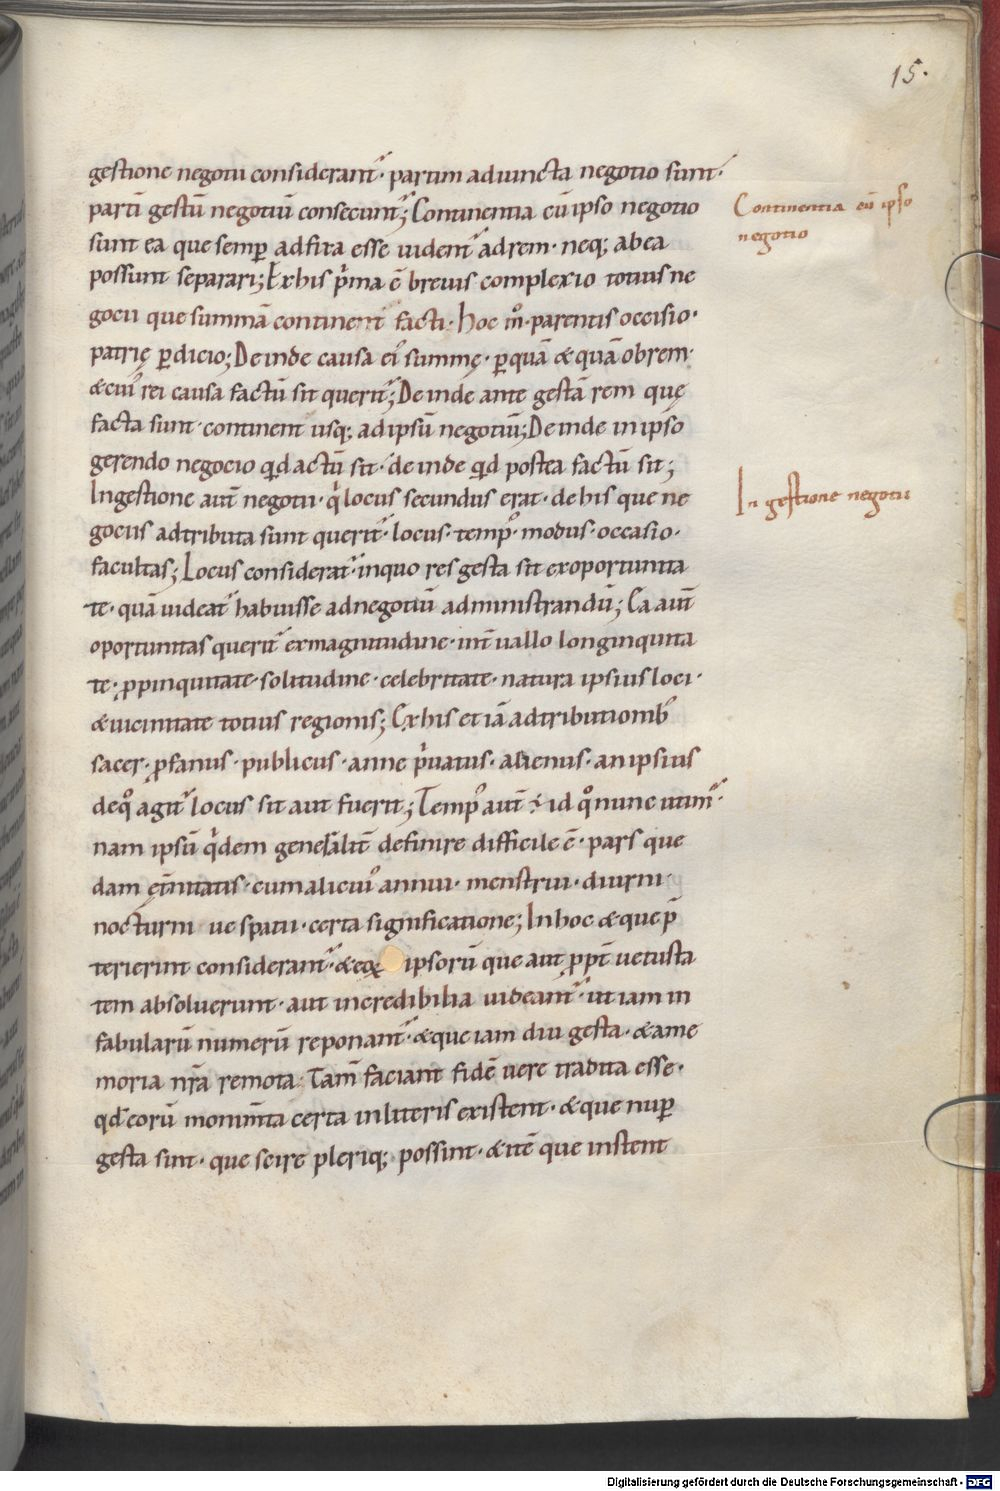 15.
gestione negotii considerant᷒· partim adiuncta negotio sunt·
parti᷑ gestū negotiū consecunt᷒; Continentia cū ipso negotio
Continentia cū ipso
negotio
sunt ea que semꝑ adfixa esse uident᷒ ad rem· neq; ab ea
possunt separari; Ex his pͥma ē breuis complexio totius ne
gocii que summā continent facti· hoc m̊· parentis occisio·
patrię ꝑdicio; Deinde causa ei᷒ summę· ꝑ quā & quā obrem·
& cui᷒ rei causa factū sit querit᷒; Deinde ante gestā rem quę
facta sunt· continent᷒ usq; ad ipsū negotiū; Deinde in ipso
gerendo negocio qͥd actū sit· deinde qͥd postea factū sit;
In gestione aut̄ negotii· qͥ locus secundus erat· de his que ne
In gestione negotii
gocius adtributa sunt querit᷒· locus· temp᷒· modus· occasio·
facultas; Locus considerat᷒· in quo res gesta sit ex oportunita
te· quā uideat᷒ habuisse ad negotiū administrandū; Ea aut̄
oportunitas querit᷒ ex magnitudine· int̄uallo longinquita
te· ꝓpinquitate· solitudine· celebritate· natura ipsius loci·
& uicinitate totius regionis; Ex his etiā adtributionib᷒
sacer· ꝓfanus· publicus· anne pͥuatus· alienus· an ipsius
de qͦ agit᷒ locus sit aut fuerit; Temp᷒ aut̄ ÷ id qͦ nunc utim᷒·
nam ipsū qͥdem generalit̄ definire difficile ē· pars que
dam ęt̄nitatis· cum alicui᷒ annui· menstrui· diurni·
nocturni ue spatii· certa significatione; In hoc & que p̄
terierunt considerant᷒· & eoꝝ ipsorū que aut ꝓpt̄ uetusta
tem absoluerunt· aut incredibilia uideant᷒· ut iam in
fabularū numerū reponant᷒· & que iam diu gesta· & a me
moria nr̄a remota· Tam̄ faciant fidē uere tradita esse·
qd̄ eorū monim̄ta certa in literis existent· & que nuꝑ
gesta sunt· que scire pleriq; possint· & itē que instent
Digitalisierung gefördert durch die Deutsche Forschungsgemeinschaft - DFG